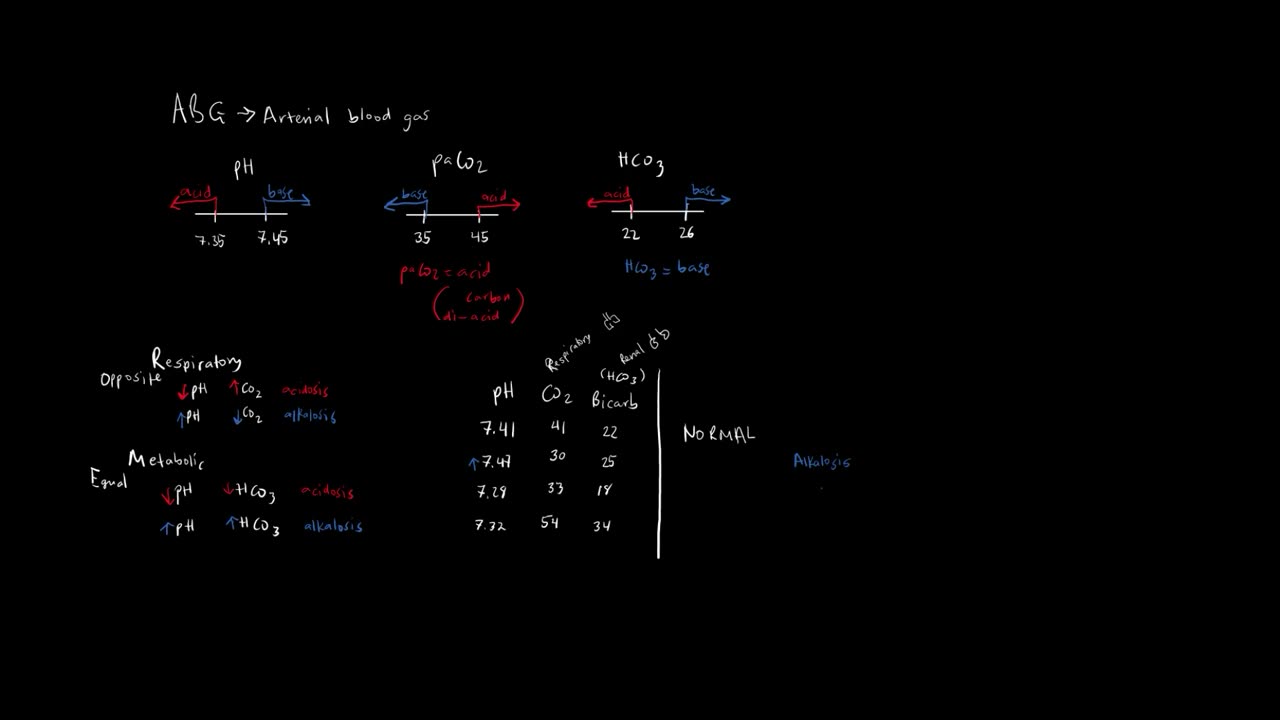 ABG → Arterial blood gas
pH paCO2 HCO3
acid base base acid acid base
7.35 7.45 35 45 22 26
paCO2 = acid HCO3 = base
(carbon
di-acid)
Respiratory
Opposite
↓pH ↑CO2 acidosis
↑pH ↓CO2 alkalosis
Metabolic
Equal
↓pH ↓HCO3 acidosis
↑pH ↑HCO3 alkalosis
Respiratory Renal
(HCO3)
pH CO2 Bicarb
7.41 41 22 NORMAL
↑7.47 30 25 Alkalosis
7.29 33 18
7.32 54 34